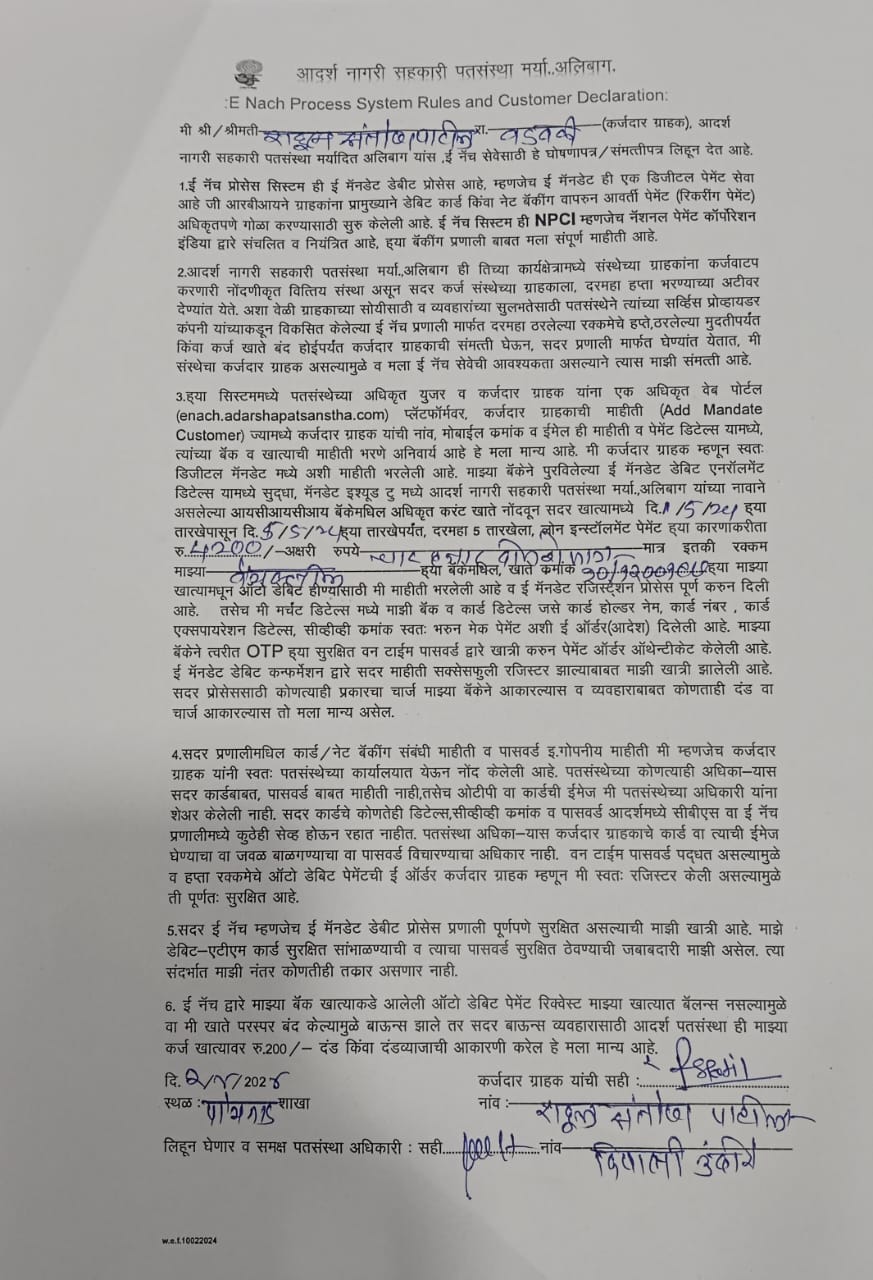 आदर्श नागरी सहकारी पतसंस्था मर्या..अलिबाग.
:E Nach Process System Rules and Customer Declaration:
मी श्री/श्रीमती राहूल संतोष पाटील रा. वडवली (कर्जदार ग्राहक), आदर्श
नागरी सहकारी पतसंस्था मर्यादित अलिबाग यांस ,ई नॅच सेवेसाठी हे घोषणापत्र/संमत्तीपत्र लिहून देत आहे.
1.ई नॅच प्रोसेस सिस्टम ही ई मॅनडेट डेबीट प्रोसेस आहे, म्हणजेच ई मॅनडेट ही एक डिजीटल पेमेंट सेवा
आहे जी आरबीआयने ग्राहकांना प्रामुख्याने डेबिट कार्ड किंवा नेट बँकींग वापरुन आवर्ती पेमेंट (रिकरींग पेमेंट)
अधिकृतपणे गोळा करण्यासाठी सुरु केलेली आहे. ई नॅच सिस्टम ही NPCI म्हणजेच नॅशनल पेमेंट कॉर्पोरेशन
इंडिया द्वारे संचलित व नियंत्रित आहे, ह्या बँकींग प्रणाली बाबत मला संपूर्ण माहीती आहे.
2.आदर्श नागरी सहकारी पतसंस्था मर्या.,अलिबाग ही तिच्या कार्यक्षेत्रामध्ये संस्थेच्या ग्राहकांना कर्जवाटप
करणारी नोंदणीकृत वित्तिय संस्था असून सदर कर्ज संस्थेच्या ग्राहकाला, दरमहा हप्ता भरण्याच्या अटीवर
देण्यांत येते. अशा वेळी ग्राहकाच्या सोयीसाठी व व्यवहारांच्या सुलभतेसाठी पतसंस्थेने त्यांच्या सर्व्हिस प्रोव्हायडर
कंपनी यांच्याकडून विकसित केलेल्या ई नॅच प्रणाली मार्फत दरमहा ठरलेल्या रक्कमेचे हप्ते,ठरलेल्या मुदतीपर्यंत
किंवा कर्ज खाते बंद होईपर्यंत कर्जदार ग्राहकाची संमत्ती घेऊन, सदर प्रणाली मार्फत घेण्यांत येतात, मी
संस्थेचा कर्जदार ग्राहक असल्यामुळे व मला ई नॅच सेवेची आवश्यकता असल्याने त्यास माझी संमत्ती आहे.
3.ह्या सिस्टिममध्ये पतसंस्थेच्या अधिकृत युजर व कर्जदार ग्राहक यांना एक अधिकृत वेब पोर्टल
(enach.adarshapatsanstha.com) प्लॅटफॉर्मवर, कर्जदार ग्राहकाची माहीती (Add Mandate
Customer) ज्यामध्ये कर्जदार ग्राहक यांची नांव, मोबाईल कमांक व ईमेल ही माहीती व पेमेंट डिटेल्स यामध्ये,
त्यांच्या बँक व खात्याची माहीती भरणे अनिवार्य आहे हे मला मान्य आहे. मी कर्जदार ग्राहक म्हणून स्वतः
डिजीटल मॅनडेट मध्ये अशी माहीती भरलेली आहे. माझ्या बँकेने पुरविलेल्या ई मॅनडेट डेबिट एनरॉलमेंट
डिटेल्स यामध्ये सुद्धा, मॅनडेट इश्यूड टु मध्ये आदर्श नागरी सहकारी पतसंस्था मर्या.,अलिबाग यांच्या नावाने
असलेल्या आयसीआयसीआय बँकेमधिल अधिकृत करंट खाते नोंदवून सदर खात्यामध्ये दि. /5/24 ह्या
तारखेपासून दि. 5/5/24 ह्या तारखेपर्यंत, दरमहा 5 तारखेला, लोन इन्स्टॉलमेंट पेमेंट ह्या कारणाकरीता
रु.4200/-अक्षरी रुपये मात्र इतकी रक्कम
माझ्या ह्या बँकेमधिल, खाते कमांक ह्या माझ्या
खात्यामधून ऑटो डेबिट होण्यासाठी मी माहीती भरलेली आहे व ई मॅनडेट रजिस्ट्रेशन प्रोसेस पूर्ण करुन दिली
आहे. तसेच मी मर्चंट डिटेल्स मध्ये माझी बँक व कार्ड डिटेल्स जसे कार्ड होल्डर नेम, कार्ड नंबर , कार्ड
एक्सपायरेशन डिटेल्स, सीव्हीव्ही कमांक स्वतः भरुन मेक पेमेंट अशी ई ऑर्डर(आदेश) दिलेली आहे. माझ्या
बँकेने त्वरीत OTP ह्या सुरक्षित वन टाईम पासवर्ड द्वारे खात्री करुन पेमेंट ऑर्डर ऑथेन्टीकेट केलेली आहे.
ई मॅनडेट डेबिट कन्फर्मेशन द्वारे सदर माहीती सक्सेसफुली रजिस्टर झाल्याबाबत माझी खात्री झालेली आहे.
सदर प्रोसेससाठी कोणत्याही प्रकारचा चार्ज माझ्या बँकेने आकारल्यास व व्यवहाराबाबत कोणताही दंड वा
चार्ज आकारल्यास तो मला मान्य असेल.
4.सदर प्रणालीमधिल कार्ड/नेट बँकींग संबंधी माहीती व पासवर्ड इ.गोपनीय माहीती मी म्हणजेच कर्जदार
ग्राहक यांनी स्वतः पतसंस्थेच्या कार्यालयात येऊन नोंद केलेली आहे. पतसंस्थेच्या कोणत्याही अधिका–यास
सदर कार्डबाबत, पासवार्ड बाबत माहीती नाही,तसेच ओटीपी वा कार्डची ईमेज मी पतसंस्थेच्या अधिकारी यांना
शेअर केलेली नाही. सदर कार्डचे कोणतेही डिटेल्स,सीव्हीव्ही कमांक व पासवार्ड आदर्शमध्ये सीबीएस वा ई नॅच
प्रणालीमध्ये कुठेही सेव्ह होऊन रहात नाहीत. पतसंस्था अधिका–यास कर्जदार ग्राहकाचे कार्ड वा त्याची ईमेज
घेण्याचा वा जवळ बाळगण्याचा वा पासवर्ड विचारण्याचा अधिकार नाही. वन टाईम पासवर्ड पद्धत असल्यामुळे
व हप्ता रक्कमेचे ऑटो डेबिट पेमेंटची ई ऑर्डर कर्जदार ग्राहक म्हणून मी स्वतः रजिस्टर केली असल्यामुळे
ती पूर्णतः सुरक्षित आहे.
5.सदर ई नॅच म्हणजेच ई मॅनडेट डेबीट प्रोसेस प्रणाली पूर्णपणे सुरक्षित असल्याची माझी खात्री आहे. माझे
डेबिट–एटीएम कार्ड सुरक्षित सांभाळण्याची व त्याचा पासवर्ड सुरक्षित ठेवण्याची जबाबदारी माझी असेल. त्या
संदर्भात माझी नंतर कोणतीही तकार असणार नाही.
6. ई नॅच द्वारे माझ्या बँक खात्याकडे आलेली ऑटो डेबिट पेमेंट रिक्वेस्ट माझ्या खात्यात बॅलन्स नसल्यामुळे
वा मी खाते परस्पर बंद केल्यामुळे बाऊन्स झाले तर सदर बाऊन्स व्यवहारासाठी आदर्श पतसंस्था ही माझ्या
कर्ज खात्यावर रु.200/– दंड किंवा दंडव्याजाची आकारणी करेल हे मला मान्य आहे.
दि. /202 कर्जदार ग्राहक यांची सही :
स्थळ : शाखा नांव :– राहूल संतोष पाटील
लिहून घेणार व समक्ष पतसंस्था अधिकारी : सही नांव दिपाली
w.e.f.10022024